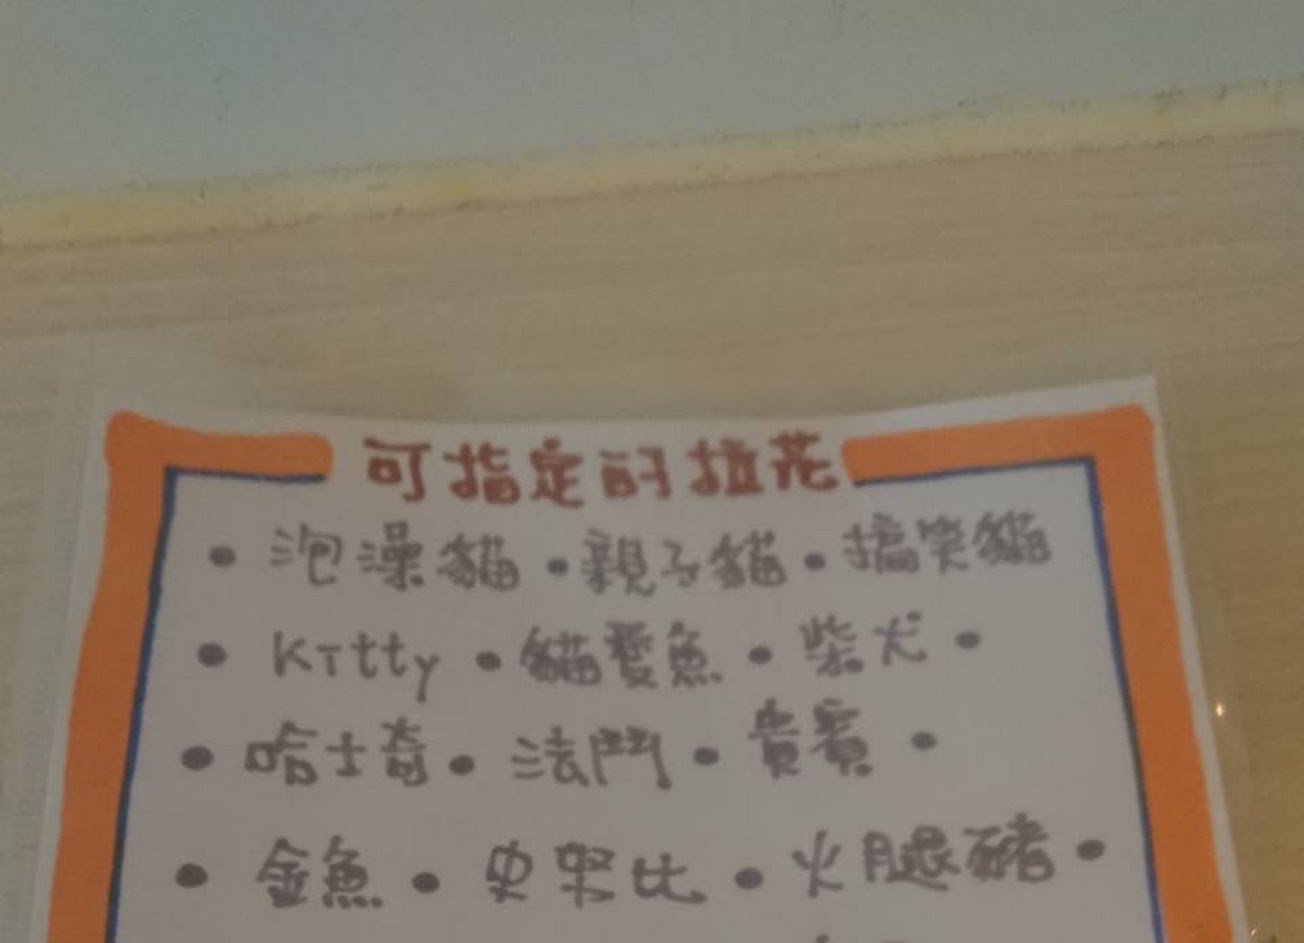 可指定的拉花
• 泡澡貓 • 親子貓 • 搞笑貓
• Kitty • 貓愛魚 • 柴犬 •
• 哈士奇 • 法鬥 • 貴賓 •
• 金魚 • 史努比 • 火腿豬 •